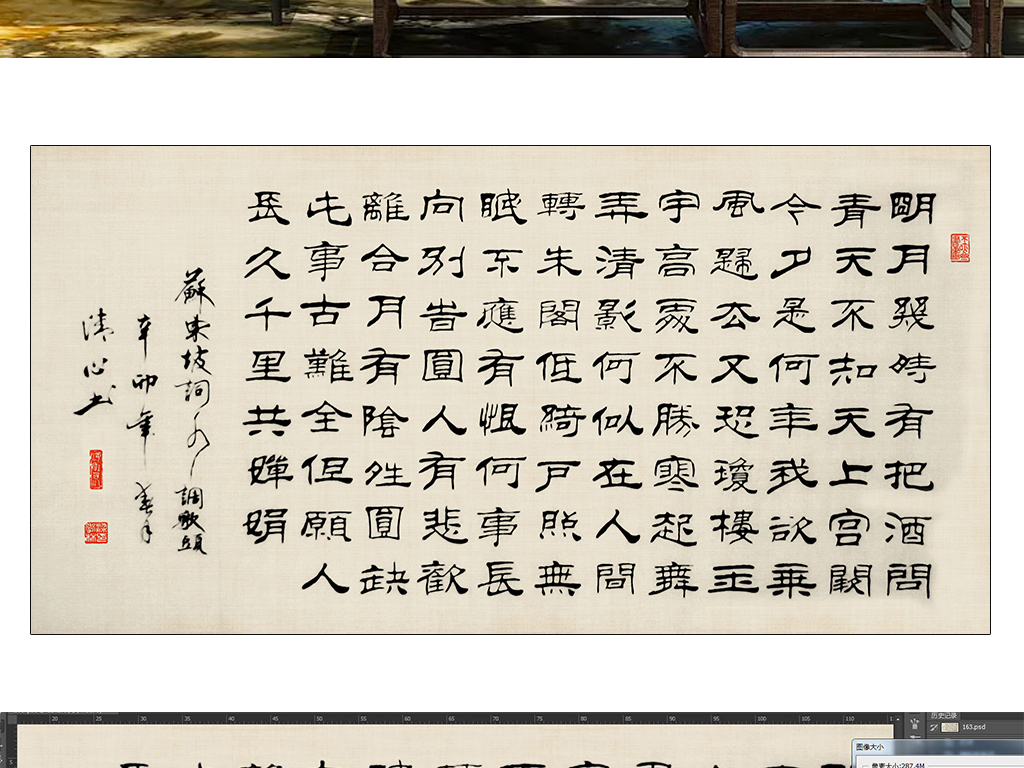 明月幾時有把酒問
青天不知天上宮闕
今夕是何年我欲乘
風歸去又恐瓊樓玉
宇高處不勝寒起舞
弄清影何似在人間
轉朱閣低綺戶照無
眠不應有恨何事長
向別旹圓人有悲歡
離合月有陰晴圓缺
此事古難全但願人
長久千里共嬋娟
蘇東坡詞水調歌頭
辛卯年春月
清心书
20 25 30 35 40 45 50 55 60 65 70 75 80 85 90 95 100 105 110
历史记录
163.psd
图像大小
像素大小:287.4M